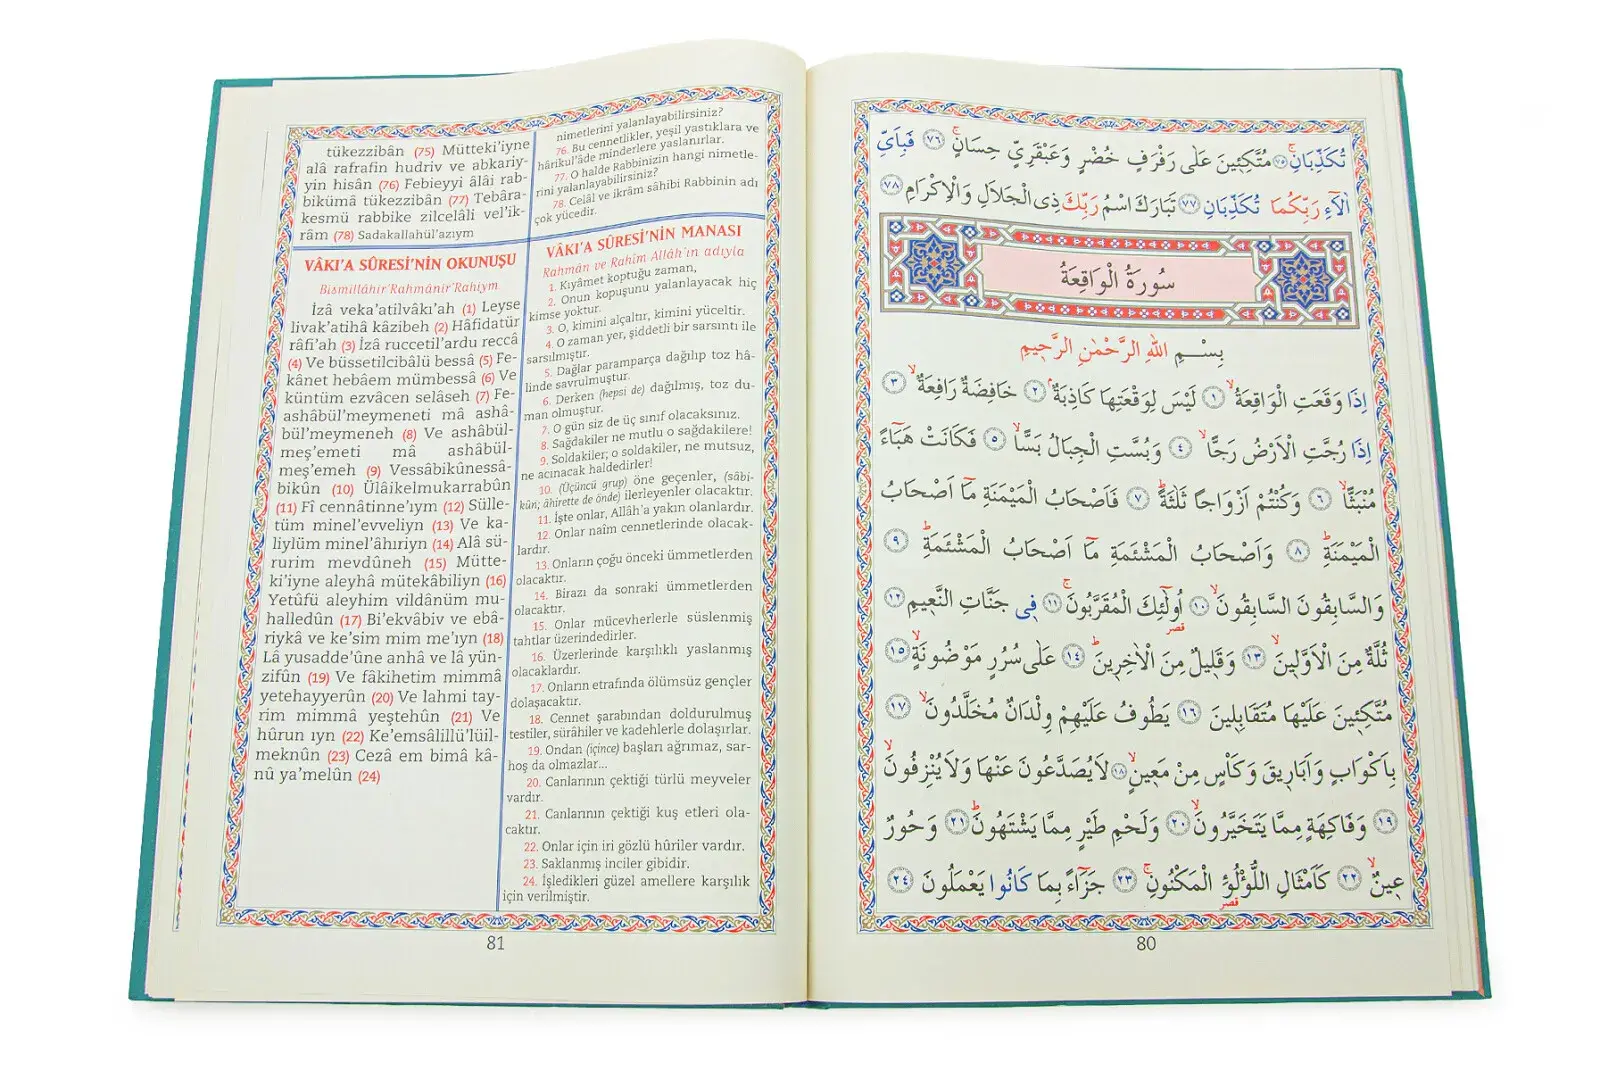 تُكَذِّبَانِۚ ﴿٧٥﴾ مُتَّكِـِٔينَ عَلٰى رَفْرَفٍ خُضْرٍ وَعَبْقَرِيٍّ حِسَانٍۚ ﴿٧٦﴾ فَبِاَيِّ
اٰلَٓاءِ رَبِّكُمَا تُكَذِّبَانِ ﴿٧٧﴾ تَبَارَكَ اسْمُ رَبِّكَ ذِي الْجَلَالِ وَالْاِكْرَامِ ﴿٧٨﴾
سُورَةُ الْوَاقِعَةُ
بِسْــمِ اللهِ الرَّحْمٰنِ الرَّحٖيمِ
اِذَا وَقَعَتِ الْوَاقِعَةُۙ ﴿١﴾ لَيْسَ لِوَقْعَتِهَا كَاذِبَةٌۘ ﴿٢﴾ خَافِضَةٌ رَافِعَةٌۙ ﴿٣﴾
اِذَا رُجَّتِ الْاَرْضُ رَجًّاۙ ﴿٤﴾ وَبُسَّتِ الْجِبَالُ بَسًّاۙ ﴿٥﴾ فَكَانَتْ هَبَٓاءً
مُنْبَثًّاۙ ﴿٦﴾ وَكُنْتُمْ اَزْوَاجًا ثَلٰثَةًؕ ﴿٧﴾ فَاَصْحَابُ الْمَيْمَنَةِ مَٓا اَصْحَابُ
الْمَيْمَنَةِؕ ﴿٨﴾ وَاَصْحَابُ الْمَشْـَٔمَةِ مَٓا اَصْحَابُ الْمَشْـَٔمَةِؕ ﴿٩﴾
وَالسَّابِقُونَ السَّابِقُونَۙ ﴿١٠﴾ اُولٰٓئِكَ الْمُقَرَّبُونَۚ ﴿١١﴾ فٖي جَنَّاتِ النَّعٖيمِ ﴿١٢﴾
قصر
ثُلَّةٌ مِنَ الْاَوَّلٖينَۙ ﴿١٣﴾ وَقَلٖيلٌ مِنَ الْاٰخِرٖينَؕ ﴿١٤﴾ عَلٰى سُرُرٍ مَوْضُونَةٍۙ ﴿١٥﴾
مُتَّكِـِٔينَ عَلَيْهَا مُتَقَابِلٖينَ ﴿١٦﴾ يَطُوفُ عَلَيْهِمْ وِلْدَانٌ مُخَلَّدُونَۙ ﴿١٧﴾
بِاَكْوَابٍ وَاَبَارٖيقَ وَكَأْسٍ مِنْ مَعٖينٍۙ ﴿١٨﴾ لَا يُصَدَّعُونَ عَنْهَا وَلَا يُنْزِفُونَۙ
﴿١٩﴾ وَفَاكِهَةٍ مِمَّا يَتَخَيَّرُونَۙ ﴿٢٠﴾ وَلَحْمِ طَيْرٍ مِمَّا يَشْتَهُونَؕ ﴿٢١﴾ وَحُورٌ
عٖينٌۙ ﴿٢٢﴾ كَاَمْثَالِ اللُّؤْلُؤِ الْمَكْنُونِۚ ﴿٢٣﴾ جَزَٓاءً بِمَا كَانُوا يَعْمَلُونَ ﴿٢٤﴾
قصر
80
tükezzibân (75) Mütteki'iyne
alâ rafrafin hudriv ve abkariy-
yin hisân (76) Febieyyi âlâi rab-
bikümâ tükezzibân (77) Tebâra-
kesmü rabbike zilcelâli vel'ik-
râm (78) Sadakallahül'azıym
VÂKI'A SÛRESİ'NİN OKUNUŞU
Bismillâhir'Rahmânir'Rahiym
İzâ veka'atilvâkı'ah (1) Leyse
livak'atihâ kâzibeh (2) Hâfidatür
râfi'ah (3) İzâ ruccetil'ardu reccâ
(4) Ve büssetilcibâlü bessâ (5) Fe-
kânet hebâem mümbessâ (6) Ve
küntüm ezvâcen selâseh (7) Fe-
ashâbül'meymeneti mâ ashâ-
bül'meymeneh (8) Ve ashâbül-
meş'emeti mâ ashâbül-
meş'emeh (9) Vessâbikûnessâ-
bikûn (10) Ülâikelmukarrabûn
(11) Fî cennâtinne'ıym (12) Sülle-
tüm minel'evveliyn (13) Ve ka-
liylüm minel'âhıriyn (14) Alâ sü-
rurim mevdûneh (15) Mütte-
ki'iyne aleyhâ mütekâbiliyn (16)
Yetûfü aleyhim vildânüm mu-
halledûn (17) Bi'ekvâbiv ve ebâ-
riykâ ve ke'sim mim me'ıyn (18)
Lâ yusadde'ûne anhâ ve lâ yün-
zifûn (19) Ve fâkihetim mimmâ
yetehayyerûn (20) Ve lahmi tay-
rim mimmâ yeştehûn (21) Ve
hûrun ıyn (22) Ke'emsâlillü'lüil-
meknûn (23) Cezâ em bimâ kâ-
nû ya'melûn (24)
nimetlerini yalanlayabilirsiniz?
76. Bu cennetlikler, yeşil yastıklara ve
hârikul'âde minderlere yaslanırlar.
77. O halde Rabbinizin hangi nimetle-
rini yalanlayabilirsiniz?
78. Celâl ve ikrâm sâhibi Rabbinin adı
çok yücedir.
VÂKI'A SÛRESİ'NİN MANASI
Rahmân ve Rahîm Allâh'ın adıyla
1. Kıyâmet koptuğu zaman,
2. Onun kopuşunu yalanlayacak hiç
kimse yoktur.
3. O, kimini alçaltır, kimini yüceltir.
4. O zaman yer, şiddetli bir sarsıntı ile
sarsılmıştır.
5. Dağlar paramparça dağılıp toz hâ-
linde savrulmuştur.
6. Derken (hepsi de) dağılmış, toz du-
man olmuştur.
7. O gün siz de üç sınıf olacaksınız.
8. Sağdakiler ne mutlu o sağdakilere!
9. Soldakiler; o soldakiler, ne mutsuz,
ne acınacak haldedirler!
10. (Üçüncü grup) öne geçenler, (sâbi-
kûn; âhirette de önde) ilerleyenler olacaktır.
11. İşte onlar, Allâh'a yakın olanlardır.
12. Onlar naîm cennetlerinde olacak-
lardır.
13. Onların çoğu önceki ümmetlerden
olacaktır.
14. Birazı da sonraki ümmetlerden
olacaktır.
15. Onlar mücevherlerle süslenmiş
tahtlar üzerindedirler.
16. Üzerlerinde karşılıklı yaslanmış
olacaklardır.
17. Onların etrafında ölümsüz gençler
dolaşacaktır.
18. Cennet şarabından doldurulmuş
testiler, sürâhiler ve kadehlerle dolaşırlar.
19. Ondan (içince) başları ağrımaz, sar-
hoş da olmazlar...
20. Canlarının çektiği türlü meyveler
vardır.
21. Canlarının çektiği kuş etleri ola-
caktır.
22. Onlar için iri gözlü hûriler vardır.
23. Saklanmış inciler gibidir.
24. İşledikleri güzel amellere karşılık
için verilmiştir.
81